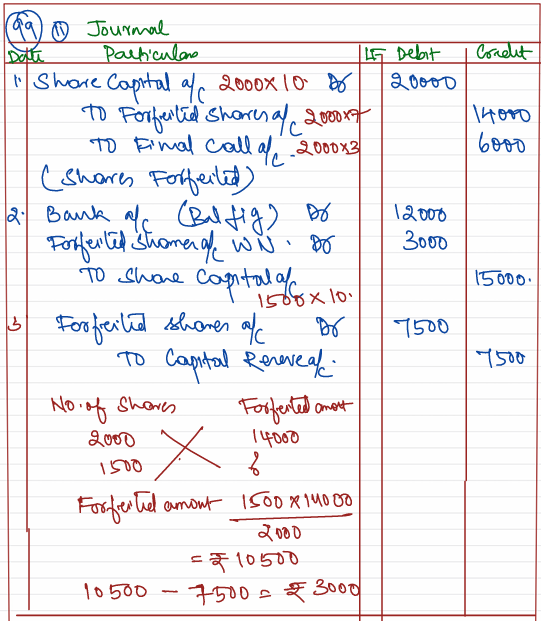 99 (ii) Journal
Date Particulars LF Debit Credit
1. Share Capital a/c 2000×10. Dr 20000
To Forfeited Shares a/c 2000×7 14000
To Final Call a/c. 2000×3 6000
(Shares Forfeited)
2. Bank a/c (Bal fig) Dr 12000
Forfeited Shares a/c WN. Dr 3000
To Share Capital a/c 15000.
1500×10.
3 Forfeited shares a/c Dr 7500
To Capital Reserve a/c. 7500
No. of Shares Forfeited amount
2000 14000
1500 ?
Forfeited amount 1500×14000
2000
= ₹10500
10500 - 7500 = ₹3000